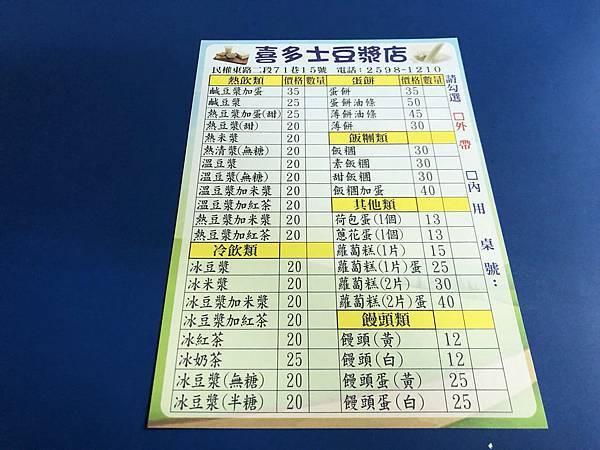 喜多士豆漿店
民權東路二段71巷15號 電話：2598-1210
熱飲類 價格 數量 蛋餅 價格 數量
鹹豆漿加蛋 35 蛋餅 35
鹹豆漿 25 蛋餅油條 50
熱豆漿加蛋(甜) 25 薄餅油條 45
熱豆漿(甜) 20 薄餅 30
熱米漿 20 飯糰類
熱清漿(無糖) 20 飯糰 30
溫豆漿 20 素飯糰 30
溫豆漿(無糖) 20 甜飯糰 30
溫豆漿加米漿 20 飯糰加蛋 40
溫豆漿加紅茶 20 其他類
熱豆漿加米漿 20 荷包蛋(1個) 13
熱豆漿加紅茶 20 蔥花蛋(1個) 13
冷飲類 蘿蔔糕(1片) 15
冰豆漿 20 蘿蔔糕(1片)蛋 25
冰米漿 20 蘿蔔糕(2片) 30
冰豆漿加米漿 20 蘿蔔糕(2片)蛋 40
冰豆漿加紅茶 20 饅頭類
冰紅茶 20 饅頭(黃) 12
冰奶茶 25 饅頭(白) 12
冰豆漿(無糖) 20 饅頭蛋(黃) 25
冰豆漿(半糖) 20 饅頭蛋(白) 25
請勾選 □外帶 □內用 桌號：